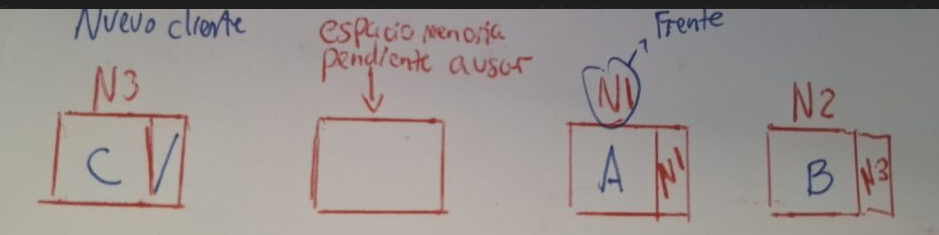 Nuevo cliente
espacio memoria
pendiente a usar
Frente
N3
N1
N2
C
A
N1
B
N3